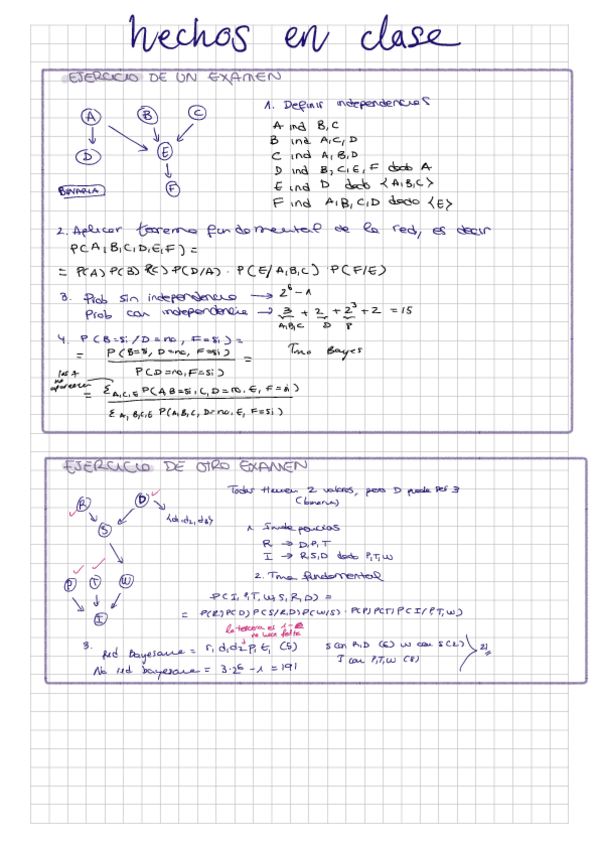 hechos en clase
EJERCICIO DE UN EXAMEN
A B C
D E
F
BINARIA
1. Definir independencias
A ind B, C
B ind A, C, D
C ind A, B, D
D ind B, C, E, F dado A
E ind D dado {A, B, C}
F ind A, B, C, D dado {E}
2. Aplicar teorema fundamental de la red, es decir
P(A, B, C, D, E, F) =
= P(A) P(B) P(C) · P(D/A) · P(E/A,B,C) P(F/E)
3. Prob sin independencia → 2⁶ - 1
Prob con independencia → 3 + 2 + 2³ + 2 = 15
A,B,C D 8
4. P(B=si / D=no, F=si) =
= P(B=si, D=no, F=si) = Tma Bayes
P(D=no, F=si)
las q no aparecen
= Σ A,C,E P(A, B=si, C, D=no, E, F=si)
Σ A, B,C,E P(A, B, C, D=no, E, F=si)
EJERCICIO DE OTRO EXAMEN
R D
S {d1, d2, d3}
P T W
I
Todas tienen 2 valores, pero D puede ser 3
(binaria)
1. Independencias
R → D, P, T
I → R, S, D dado P, T, W
2. Tma fundamental
P(I, P, T, W, S, R, D) =
= P(R) P(D) P(S/R,D) P(W/S) · P(P) P(T) P(I/P,T,W)
la tercera es 1-
no hace falta
3. Red Bayesiana = r, d1 d2 p, t, (5) S con R,D (6) W con S (2) 21
I con P,T,W (8)
No red bayesiana = 3·2⁶ - 1 = 191